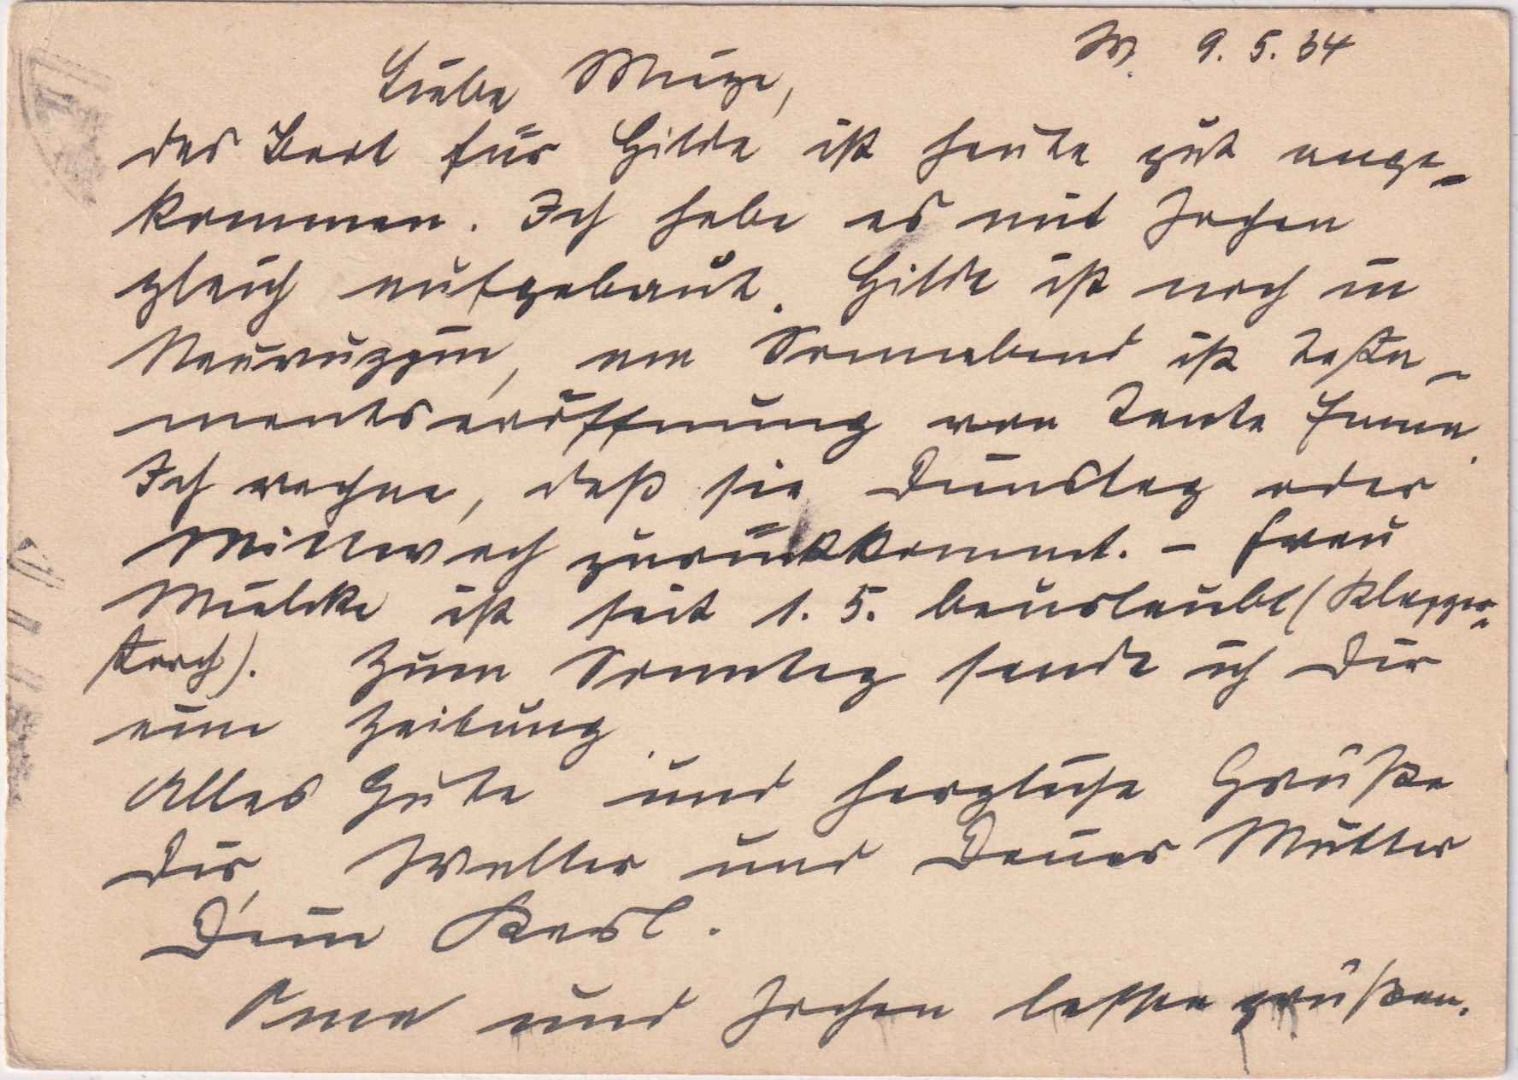 W. 9. 5. 34
Liebe Mieze,
das Bett für Hilde ist heute gut ange-
kommen. Ich habe es mit Jochen
gleich aufgebaut. Hilde ist noch in
Neuruppin, am Sonnabend ist Testa-
mentseröffnung von Tante Emma.
Ich rechne, daß sie Dienstag oder
Mittwoch zurückkommt. – Frau
Mielcke ist seit 1. 5. beurlaubt (Klapper-
storch). Zum Sonntag sende ich Dir
eine Zeitung.
Alles Gute und herzliche Grüße
Dir, Walter und Deiner Mutter
Dein Karl.
Oma und Jochen lassen grüßen.